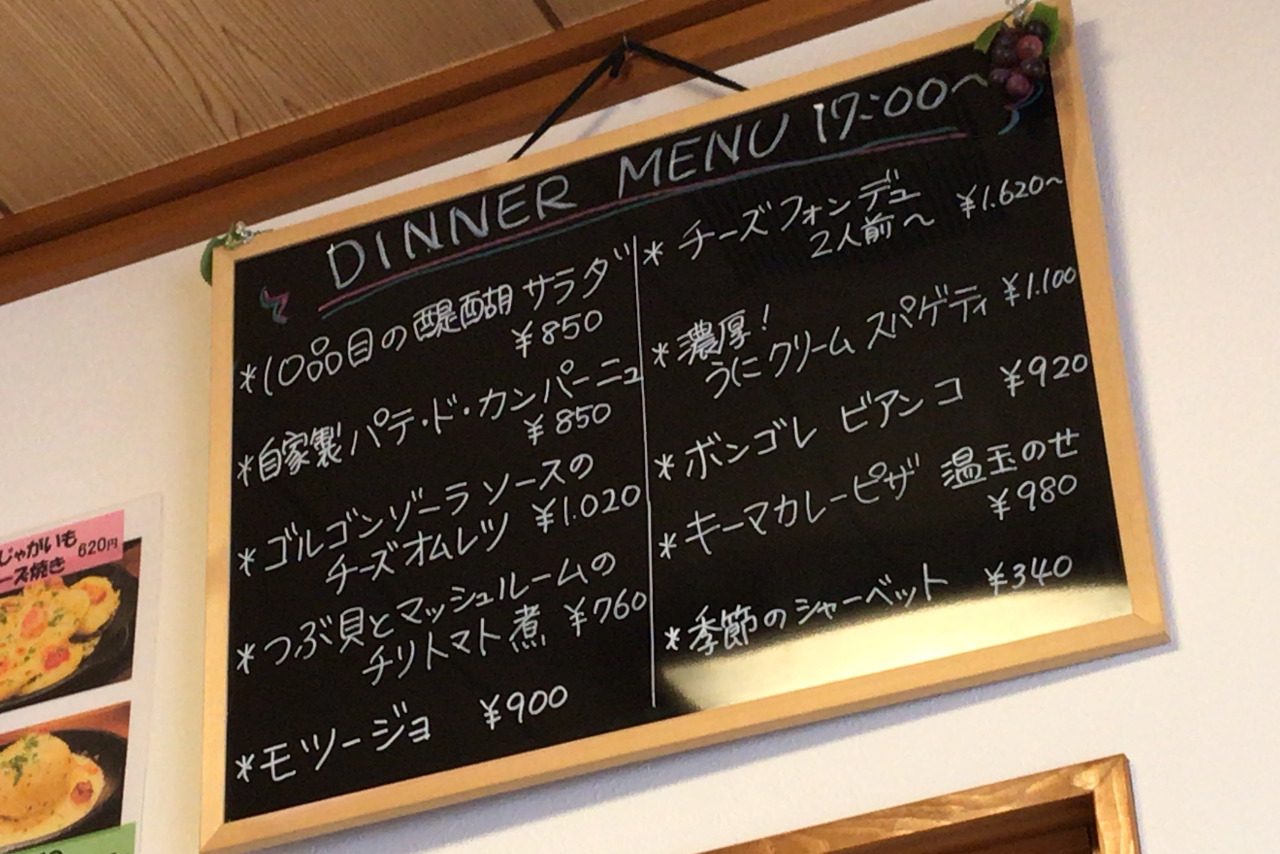 DINNER MENU 17:00〜
*10品目の醍醐サラダ
¥850
*自家製パテ・ド・カンパーニュ
¥850
*ゴルゴンゾーラソースの
チーズオムレツ ¥1.020
*つぶ貝とマッシュルームの
チリトマト煮 ¥760
*モツージョ ¥900
*チーズフォンデュ
2人前〜 ¥1.620〜
*濃厚!
うにクリームスパゲティ ¥1.100
*ボンゴレ ビアンコ ¥920
*キーマカレーピザ 温玉のせ
¥980
*季節のシャーベット ¥340
じゃがいも
ーズ焼き 620円